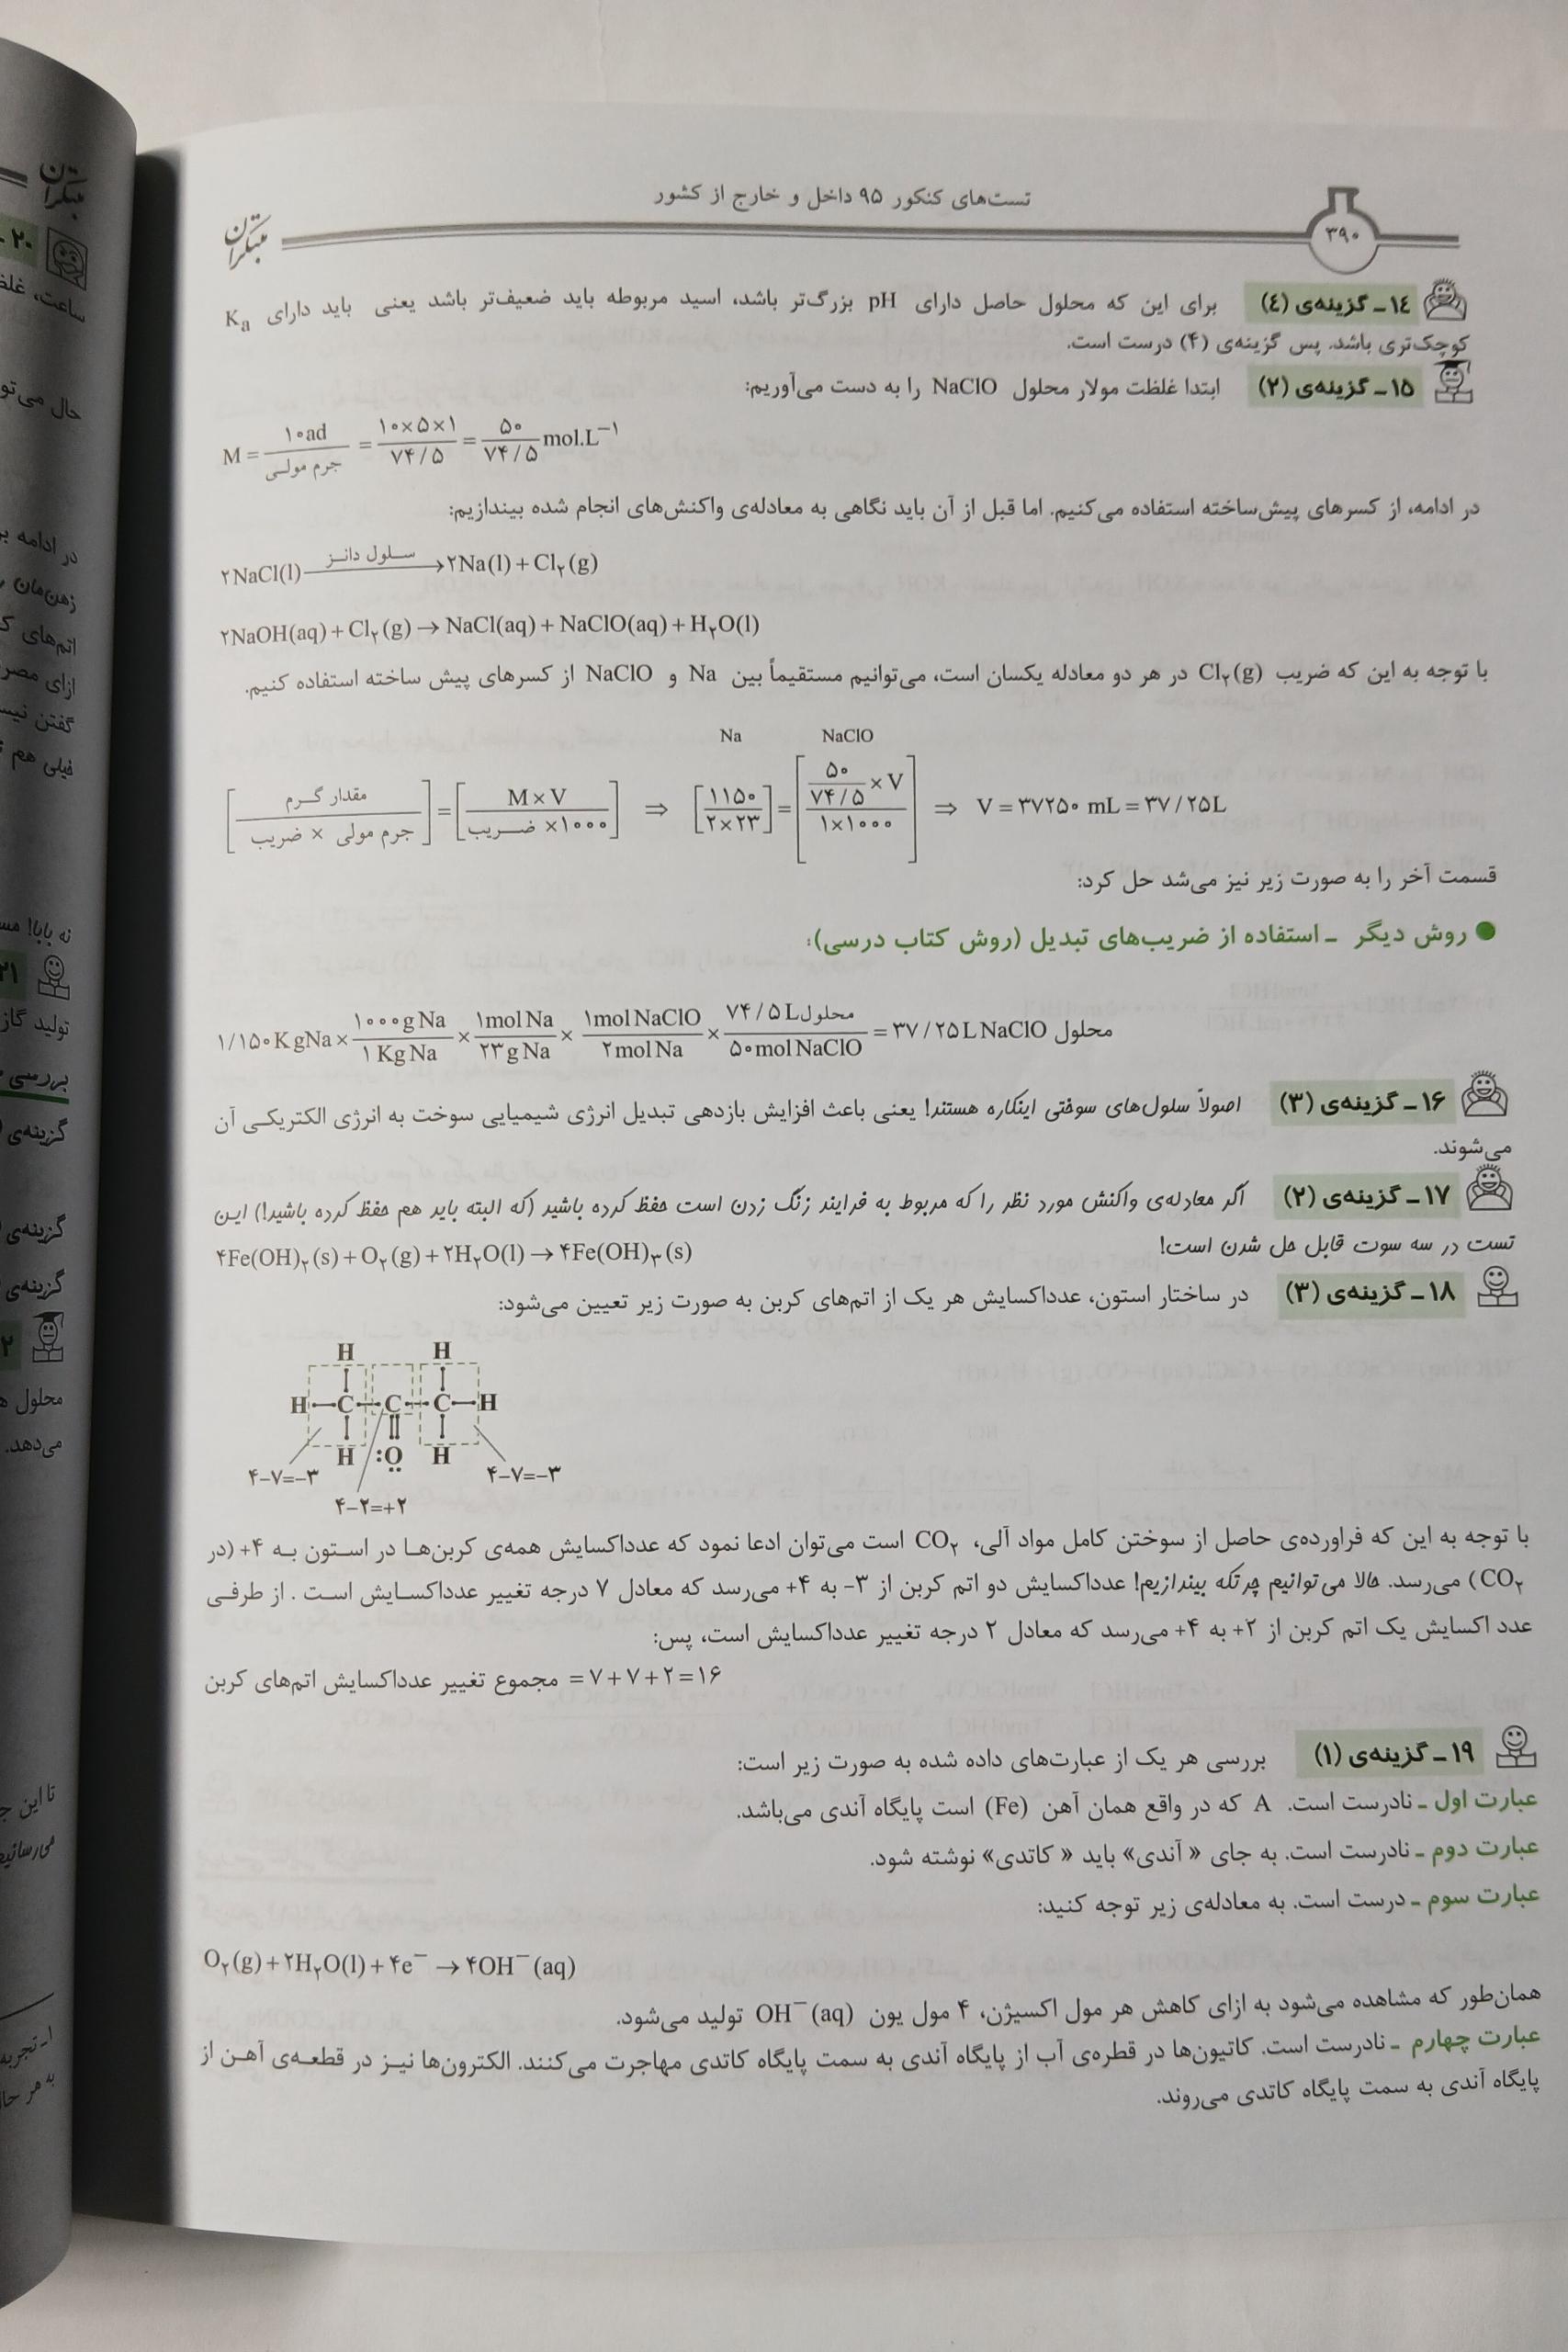 تست‌های کنکور ۹۵ داخل و خارج از کشور
۳۹۰
مبتکران
۱۴ ـ گزینه‌ی (۴) برای این که محلول حاصل دارای pH بزرگ‌تر باشد، اسید مربوطه باید ضعیف‌تر باشد یعنی باید دارای Ka
کوچک‌تری باشد. پس گزینه‌ی (۴) درست است.
۱۵ ـ گزینه‌ی (۲) ابتدا غلظت مولار محلول NaClO را به دست می‌آوریم:
M = ۱۰ad / جرم مولی = ۱۰×۵×۱ / ۷۴/۵ = ۵۰ / ۷۴/۵ mol.L⁻¹
در ادامه، از کسرهای پیش‌ساخته استفاده می‌کنیم. اما قبل از آن باید نگاهی به معادله‌ی واکنش‌های انجام شده بیندازیم:
۲NaCl(l) سلول دانز → ۲Na(l) + Cl۲(g)
۲NaOH(aq) + Cl۲(g) → NaCl(aq) + NaClO(aq) + H۲O(l)
با توجه به این که ضریب Cl۲(g) در هر دو معادله یکسان است، می‌توانیم مستقیماً بین Na و NaClO از کسرهای پیش ساخته استفاده کنیم.
Na NaClO
[مقدار گرم / جرم مولی × ضریب] = [M×V / ضریب ×۱۰۰۰] ⇒ [۱۱۵۰ / ۲×۲۳] = [۵۰ / ۷۴/۵ ×V / ۱×۱۰۰۰] ⇒ V = ۳۷۲۵۰ mL = ۳۷/۲۵L
قسمت آخر را به صورت زیر نیز می‌شد حل کرد:
● روش دیگر ـ استفاده از ضریب‌های تبدیل (روش کتاب درسی):
۱/۱۵۰ KgNa × ۱۰۰۰g Na / ۱ Kg Na × ۱mol Na / ۲۳ g Na × ۱mol NaClO / ۲mol Na × ۷۴/۵ L محلول / ۵۰mol NaClO = ۳۷/۲۵L NaClO محلول
۱۶ ـ گزینه‌ی (۳) اصولاً سلول‌های سوختی اینکاره هستند! یعنی باعث افزایش بازدهی تبدیل انرژی شیمیایی سوخت به انرژی الکتریکی آن
می‌شوند.
۱۷ ـ گزینه‌ی (۲) اگر معادله‌ی واکنش مورد نظر را که مربوط به فرایند زنگ زدن است حفظ کرده باشید (که البته باید هم حفظ کرده باشید!) این
تست در سه سوت قابل حل شدن است!
۴Fe(OH)۲(s) + O۲(g) + ۲H۲O(l) → ۴Fe(OH)۳(s)
۱۸ ـ گزینه‌ی (۳) در ساختار استون، عدداکسایش هر یک از اتم‌های کربن به صورت زیر تعیین می‌شود:
H H
H—C—C—C—H
H :O H
۴−۷=−۳ ۴−۷=−۳
۴−۲=+۲
با توجه به این که فراورده‌ی حاصل از سوختن کامل مواد آلی، CO۲ است می‌توان ادعا نمود که عدداکسایش همه‌ی کربن‌ها در استون به ۴+ (در
CO۲) می‌رسد. حالا می‌توانیم چرتکه بیندازیم! عدداکسایش دو اتم کربن از ۳− به ۴+ می‌رسد که معادل ۷ درجه تغییر عدداکسایش است. از طرفی
عدد اکسایش یک اتم کربن از ۲+ به ۴+ می‌رسد که معادل ۲ درجه تغییر عدداکسایش است، پس:
مجموع تغییر عدداکسایش اتم‌های کربن = ۷+۷+۲=۱۶
۱۹ ـ گزینه‌ی (۱) بررسی هر یک از عبارت‌های داده شده به صورت زیر است:
عبارت اول ـ نادرست است. A که در واقع همان آهن (Fe) است پایگاه آندی می‌باشد.
عبارت دوم ـ نادرست است. به جای « آندی» باید « کاتدی» نوشته شود.
عبارت سوم ـ درست است. به معادله‌ی زیر توجه کنید:
O۲(g) + ۲H۲O(l) + ۴e⁻ → ۴OH⁻(aq)
همان‌طور که مشاهده می‌شود به ازای کاهش هر مول اکسیژن، ۴ مول یون OH⁻(aq) تولید می‌شود.
عبارت چهارم ـ نادرست است. کاتیون‌ها در قطره‌ی آب از پایگاه آندی به سمت پایگاه کاتدی مهاجرت می‌کنند. الکترون‌ها نیز در قطعه‌ی آهن از
پایگاه آندی به سمت پایگاه کاتدی می‌روند.
مبتکران
۲۰ ـ
ساعت، غلظ
حال می‌تو
در ادامه بر
ذهن‌مان
اتم‌های ک
ازای مصر
گفتن نیس
خیلی هم
نه بابا! مس
۲۱
تولید گاز
بررسی
گزینه‌ی
گزینه‌ی
گزینه‌ی
۲
محلول ه
می‌دهد.
تا این ج
می‌رسانیم
۱ـ تجربه
به هر حال